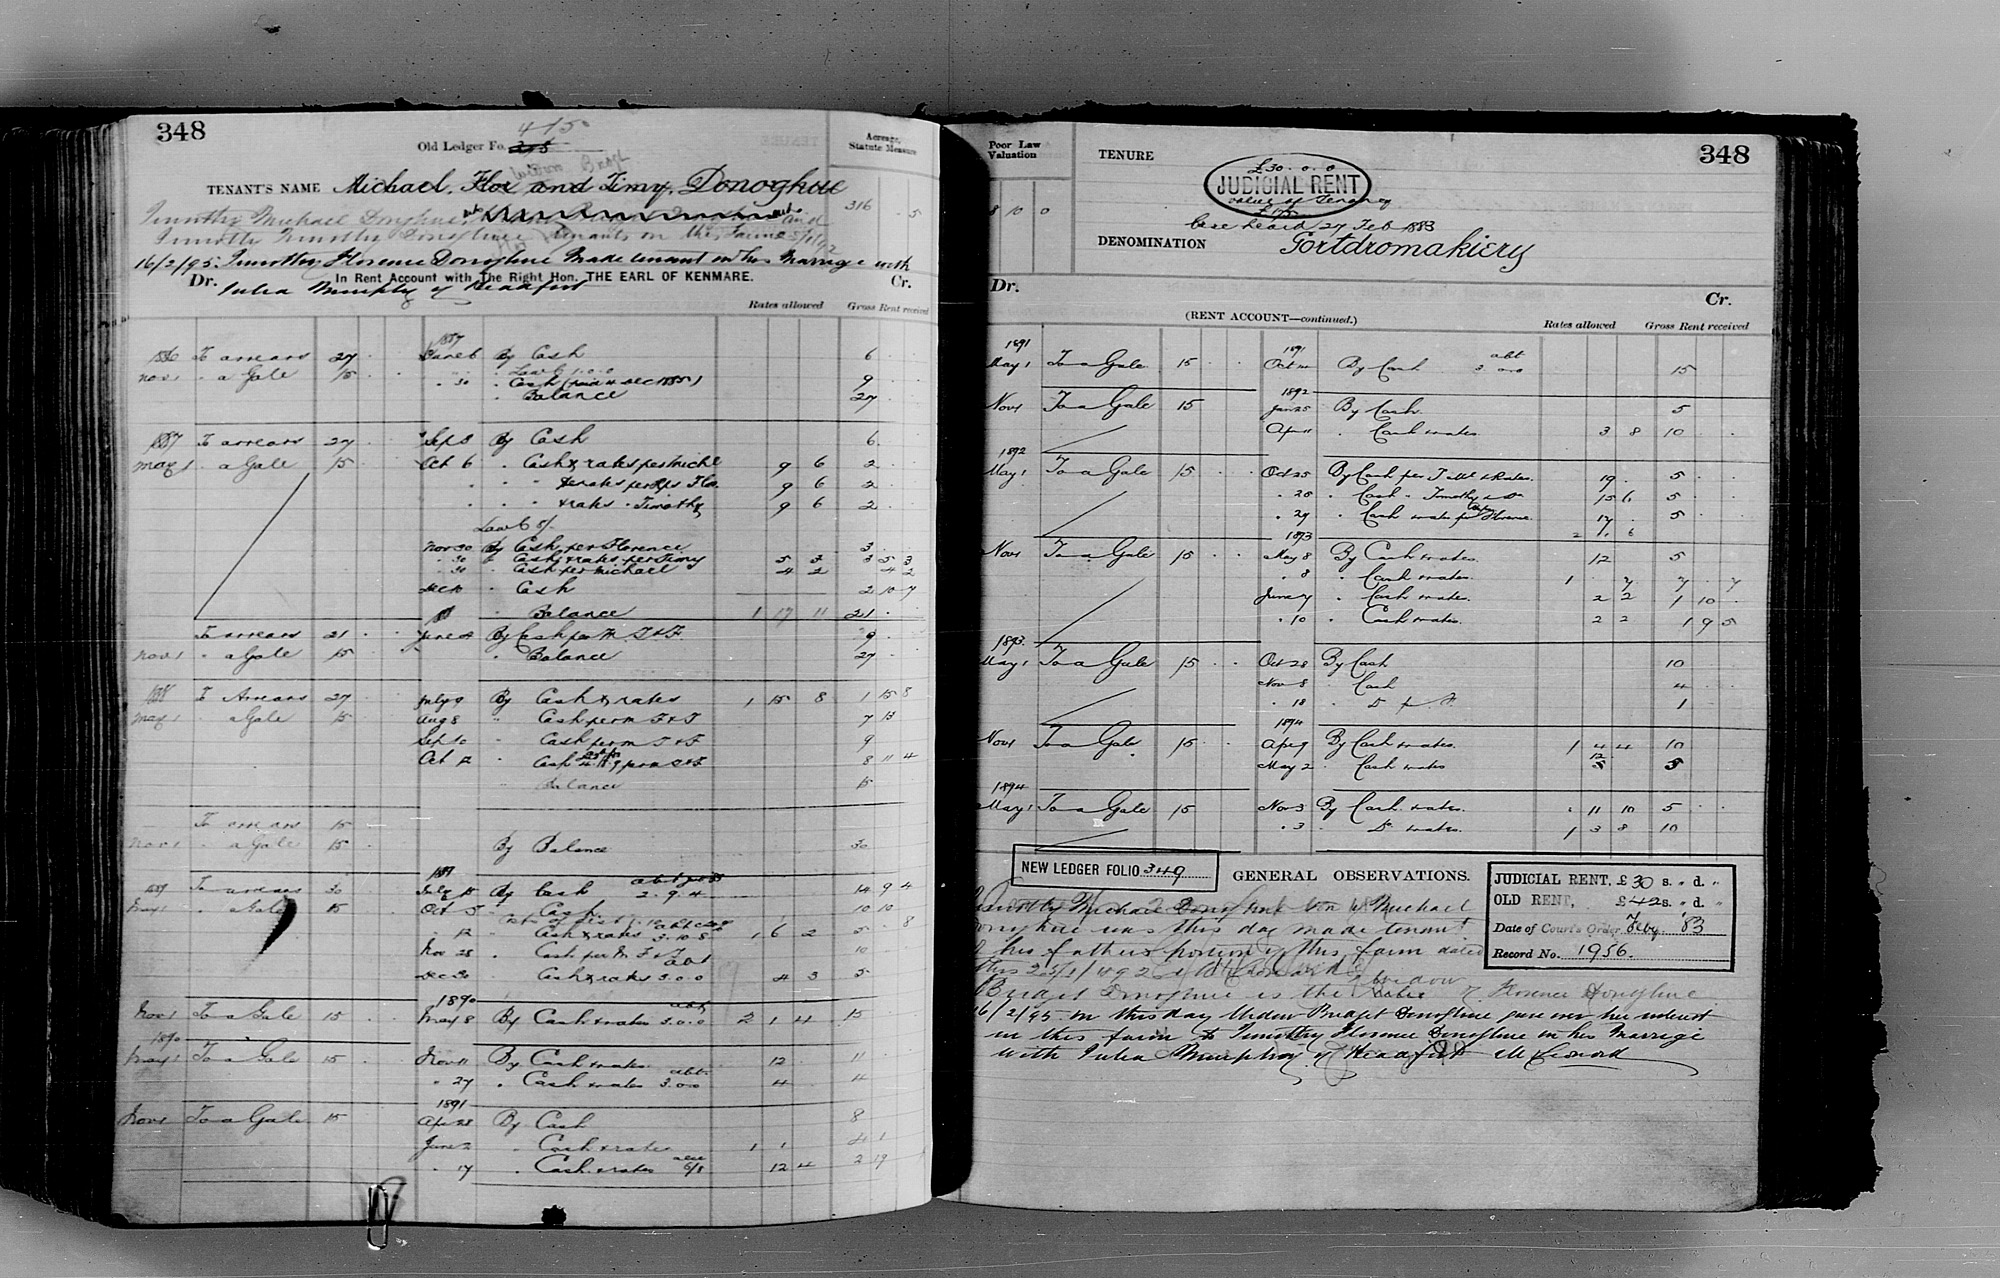 348
415
Old Ledger Fo.
Acreage, Statute Measure
Widow Bridget
TENANT'S NAME Michael, Flor and Timy. Donoghue
316 . 5
Timothy Michael Donoghue, and
Timothy Timothy Donoghue tenants on the farm 25/1/92
16/2/95. Timothy Florence Donoghue Made tenant on his Marriage with
Dr. In Rent Account with The Right Hon. THE EARL OF KENMARE. Cr.
Julia Murphy of Headfort
Rates allowed Gross Rent received
1887
1886 To arrears 27 June 6 By Cash 6
Nov 1 " a Gale 15 " Law C 1.0.0
" 30 " Cash (paid 4 Dec 1885) 9
" Balance 27
1887 To arrears 27 Sep 8 By Cash 6
May 1 " a Gale 15 Oct 6 " Cash & rates per Michl 9 6 2
" " " & rates per Flo. 9 6 2
" " " & rates " Timothy 9 6 2
Law C 5/.
Nov 30 By Cash per Florence 3
" 30 " Cash & rates per Timy 5 3 3 5 3
" 30 " Cash per Michael 4 2 4 2
Dec 10 " Cash 2 10 7
" Balance 1 17 11 21
To arrears 21 June By Cash per M. T & F 9
Nov 1 " a Gale 15 " Balance 27
1888 To Arrears 27 July 9 By Cash & rates 1 15 8 1 15 8
May 1 " a Gale 15 Aug 8 " Cash per M T & F 7 13
Sep 10 " Cash per M T & F 9
Oct 12 " Cash per M T & F 8 11 4
" Balance 15
To arrears 15
Nov 1 " a Gale 15 By Balance 30
1889
1889 To arrears 30 July 15 By Cash 2.9.4 14 9 4
May 1 " a Gale 15 Oct 5 " Cash 10 10
" 12 " Cash & rates 3.10.8 1 6 2 5 . 8
Nov 28 " Cash per M F & T 10
Dec 30 " Cash & rates 3.0.0 4 3 5
1890
Nov 1 To a Gale 15 May 8 By Cash & rates abt 3.0.0 2 1 4 15
1890
May 1 To a Gale 15 Nov 11 By Cash & rates 12 11
" 27 " Cash & rates abt 3.0.0 4 4
1891
Nov 1 To a Gale 15 Apr 28 By Cash 8
June 2 " Cash & rates 1 1 4 1
" 17 " Cash & rates 6/8 12 4 2 19
348
Poor Law Valuation
8 10 0
TENURE
£30.0.0
JUDICIAL RENT
Value of Tenancy
£175
Case heard 27 Feb 1883
DENOMINATION Fortdromakiery
Dr. Cr.
(RENT ACCOUNT—continued.)
Rates allowed Gross Rent received
1891 1891
May 1 To a Gale 15 Oct By Cash abt 3.0.0 15
1892
Nov 1 To a Gale 15 Jan 25 By Cash 5
Apr 11 " Cash & rates 3 8 10
1892
May 1 To a Gale 15 Oct 25 By Cash per T Ml & Rates 19 5
" 25 " Cash " Timothy & Do 15 6 5
" 29 " Cash & rates for Florence 17 5
1893 2 11 6
Nov 1 To a Gale 15 May 8 By Cash & rates 12 5
" 8 " Cash & rates 1 . 7 7 . 7
June 7 " Cash & rates 2 2 1 10
" 10 " Cash & rates 2 2 1 9 5
1893
May 1 To a Gale 15 Oct 28 By Cash 10
Nov 8 " Cash 4
" 18 " Do 1
1894
Nov 1 To a Gale 15 Apr 9 By Cash & rates 1 4 4 10
May 2 " Cash & rates 12 5
1894
May 1 To a Gale 15 Nov 3 By Cash & rates 11 10 5
" 3 " Do & rates 1 3 8 10
NEW LEDGER FOLIO 349
GENERAL OBSERVATIONS.
JUDICIAL RENT, £30 s. " d. "
OLD RENT, £42 s. " d. "
Date of Court's Order Feby '83
Record No. 1956.
Timothy Michael Donoghue son of Michael
Donoghue was this day made tenant
his fathers portion of this farm dated
this 25/1/1892
Bridget Donoghue is the widow of Florence Donoghue
16/2/95. On this day Widow Bridget Donoghue gave over her interest
in this farm to Timothy Florence Donoghue on his Marriage
with Julia Murphy of Headfort M Leonard